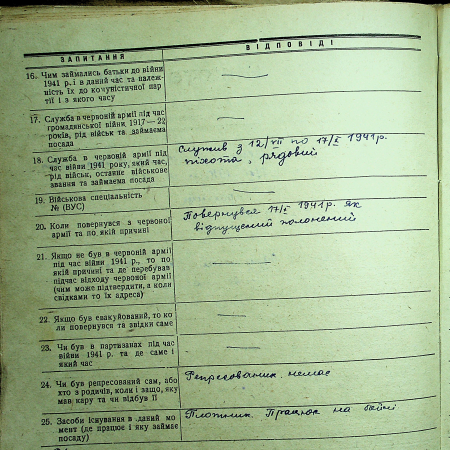 ЗАПИТАННЯ
ВІДПОВІДІ
16. Чим займались батьки до війни
1941 р. і в даний час та належ-
ність їх до комуністичної пар-
тії і з якого часу
17. Служба в червоній армії під час
громадянської війни 1917—22
років, рід військ та займаєма
посада
18. Служба в червоній армії під
час війни 1941 року, який час,
рід військ, останнє військове
звання та займаєма посада
Служив з 12/VII по 17/X 1941 р.
піхота, рядовий
19. Військова спеціальність
№ (ВУС)
20. Коли повернувся з червоної
армії та по якій причині
Повернувся 17/X 1941 р. як
відпущений полонений
21. Якщо не був в червоній армії
під час війни 1941 р., то по
якій причині та де перебував
підчас відходу червоної армії
(чим може підтвердити, а коли
свідками то їх адреса)
22. Якщо був евакуйований, то ко
ли повернувся та звідки саме
23. Чи був в партизанах під час
війни 1941 р. та де саме і
який час
24. Чи був репресований сам, або
хто з родичів, коли і защо, яку
мав кару та чи відбув її
Репресованих немає
25. Засоби існування в даний мо
мент (де працює і яку займає
посаду)
Плотник. Працює на